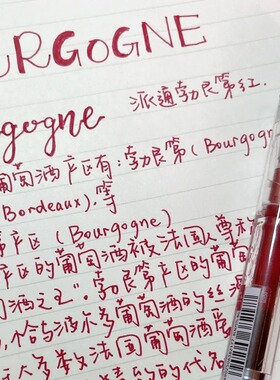 URGOGNE
派通勃艮第红.
gogne
葡萄酒产区有：勃艮第（Bourgogn
Bordeaux）.等
产区（Bourgogne）
产区的葡萄酒被法国人尊称
酒之王".勃艮第产区的葡
恰与波尔多葡萄酒的丝滑
大多数法国葡萄酒
的代名